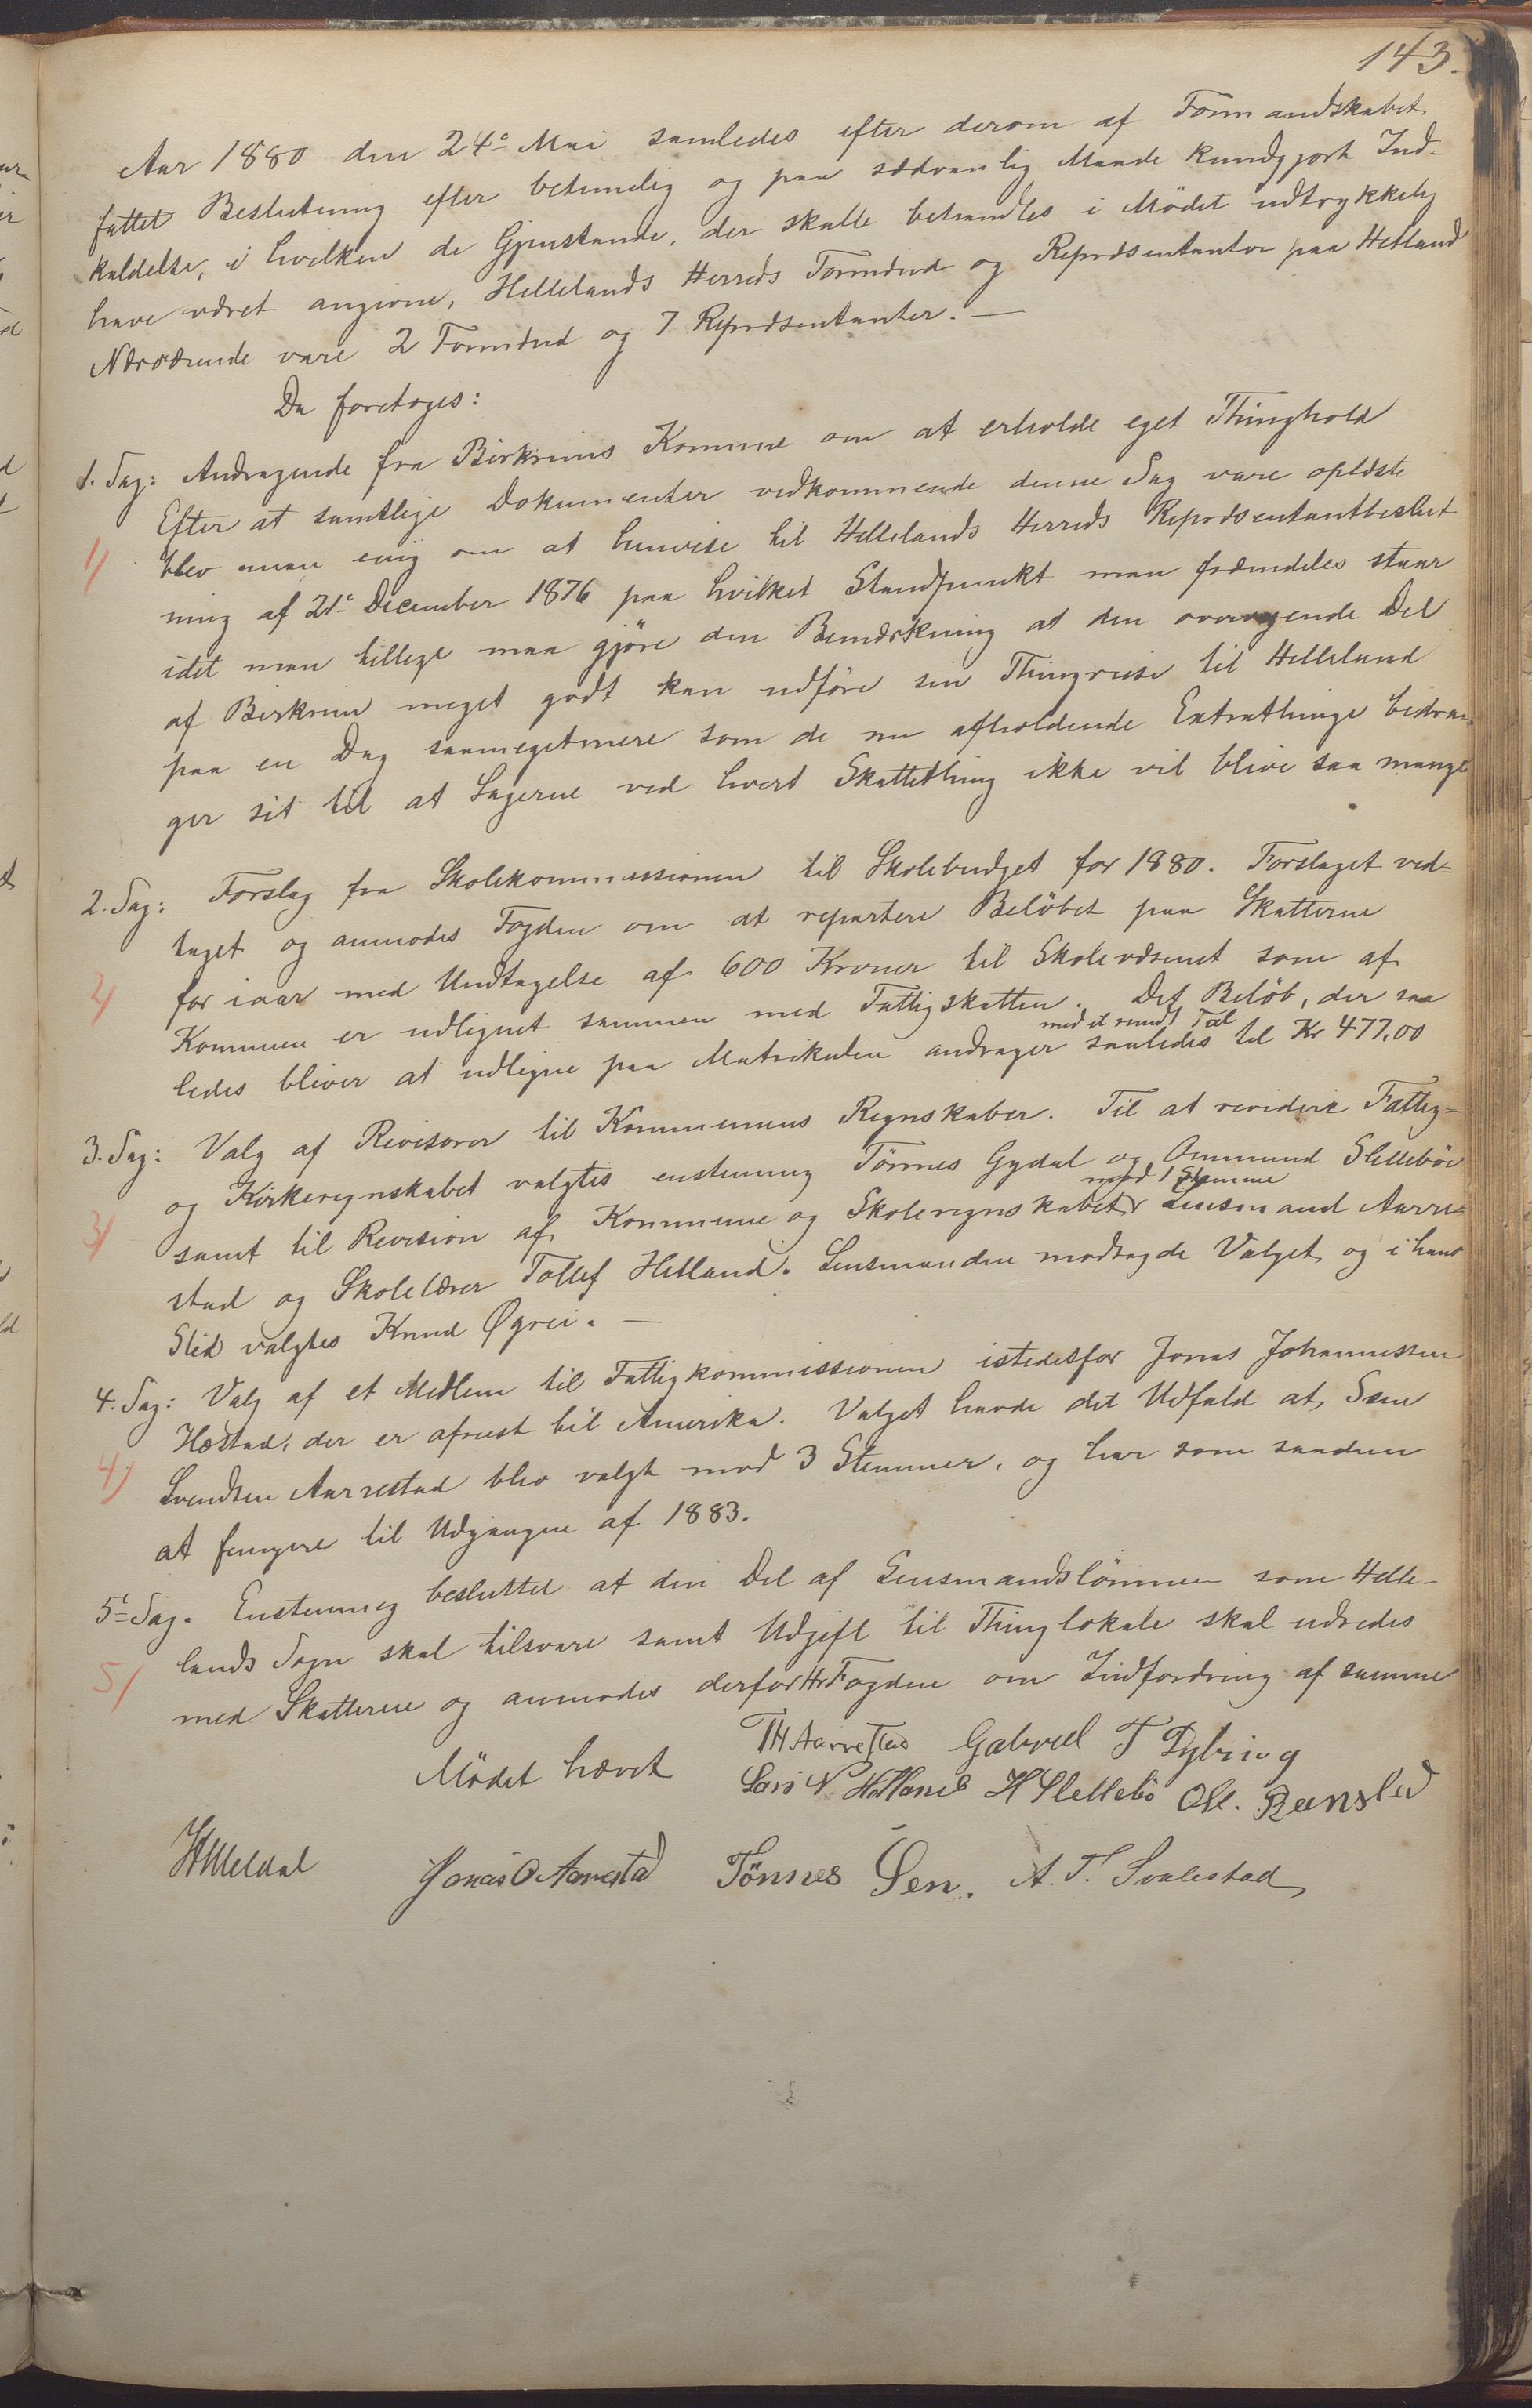 143.
Aar 1880 den 24de Mai samledes efter derom af Formandskabet
fattet Beslutning efter betimelig og paa sædvanlig Maade kundgjort Ind-
kaldelse, i hvilken de Gjenstande, der skulle behandles i Mödet udtrykkelig
have været angivne, Hellelands Herreds Formænd og Repræsentanter paa Hetland
Nærværende vare 2 Formænd og 7 Repræsentanter. —
Da foretoges:
1. Sag: Andragende fra Birkrims Kommune om at erholde eget Thinghold
Efter at samtlige Dokumenter vedkommende denne Sag vare oplæste
1/ blev man enig om at henvise til Hellelands Herreds Repræsentantbeslut
ning af 21de December 1876 paa hvilket Standpunkt man fremdeles staar
idet man tillige maa gjöre den Bemærkning at den overveiende Del
af Birkrim meget godt kan udföre sin Thingreise til Helleland
paa en Dag saameget mere som de nu afholdende Extrathinge bidra-
ger sit til at Sagerne ved hvert Skattething ikke vil blive saa mange
2. Sag: Forslag fra Skolekommissionen til Skolebudget for 1880. Forslaget ved-
taget og anmodes Fogden om at repartere Belöbet paa Skatterne
2/ for iaar med Undtagelse af 600 Kroner til Skolevæsenet som af
Kommunen er udlignet sammen med Fattigskatten. Det Belöb, der saa
med et rundt Tal
ledes bliver at udligne paa Matrikulen andrager saaledes til Kr 477,00
3. Sag: Valg af Revisorer til Kommunens Regnskaber. Til at revidere Fattig-
og Kirkeregnskabet valgtes enstemmig Tönnes Gydal og Ommund Sletteböe
med 1 Stemme
3/ samt til Revision af Kommune og Skoleregnskabet Lensmand Aarre-
stad og Skolelærer Tollef Hetland. Lensmanden modsagde Valget og i hans
Sted valgtes Knud Øgrei. —
4. Sag: Valg af et Medlem til Fattigkommissionen istedetfor Jonas Johannessen
Hæstad, der er afreist til Amerika. Valget havde det Udfald at Sven
4/ Svendsen Aarrestad blev valgt med 3 Stemmer, og har som saadan
at fungere til Udgangen af 1883.
5te Sag. Enstemmig besluttet at den Del af Lensmandslönnen som Helle-
lands Sogn skal tilsvare samt Udgift til Thinglokale skal udredes
5/ med Skatterne og anmodes derfor Hr Fogden om Indfordring af samme
Mödet hævet
TH Aarrestad Gabriel T Dybing
Lars N Hetland H Slettebö Ole. Ramslad
Jonas O Aarrestad Tönnes Sen. A. T. Svalestad